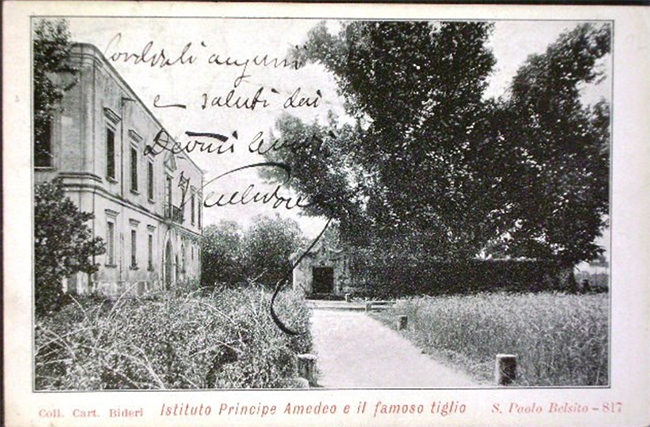 Cordiali auguri
e saluti dai
Devmi
Coll. Cart. Bideri Istituto Principe Amedeo e il famoso tiglio S. Paolo Belsito - 817